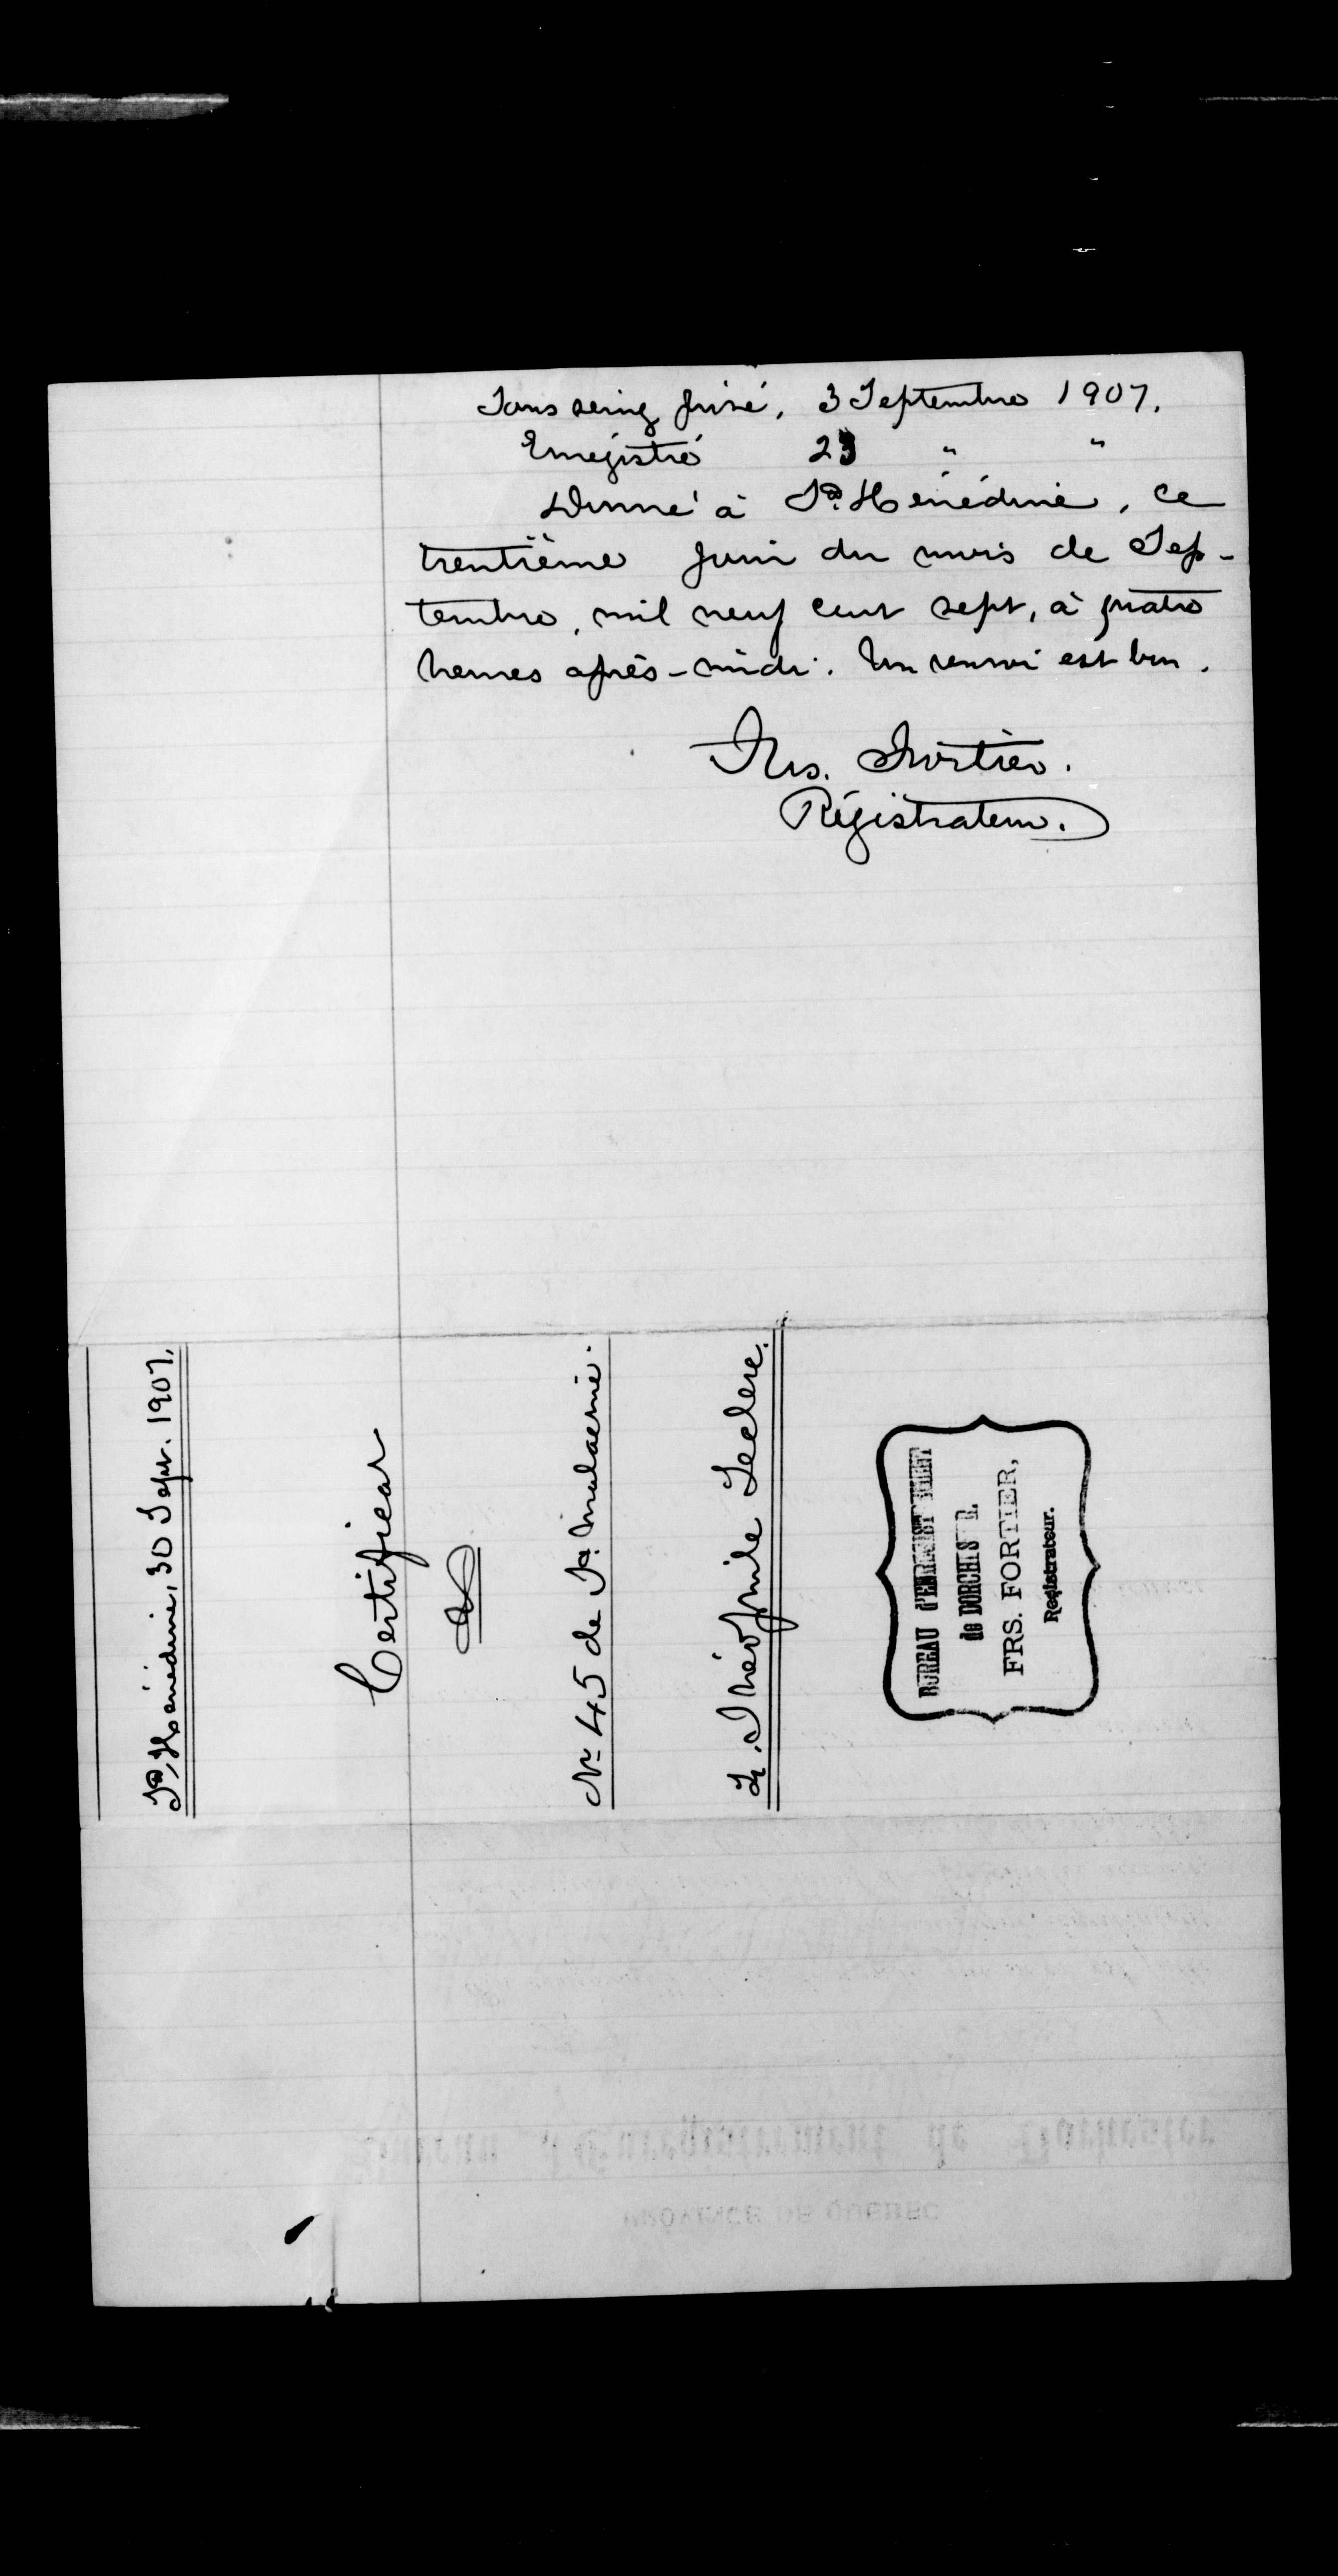 Sous seing privé, 3 Septembre 1907.
Enregistré 23 " "
Donné à Ste. Hénédine, ce
trentième jour du mois de Sep-
tembre, mil neuf cent sept, à quatre
heures après-midi. Un renvoi est bon.
Frs. Fortier.
Régistrateur.
Ste. Hénédine, 30 Sept. 1907.
Certificat
No 45 de St. Malachie.
Théophile Leclerc.
BUREAU d'ENREGISTREMENT
de DORCHESTER.
FRS. FORTIER,
Registrateur.
Bureau d'Enregistrement de Dorchester
PROVINCE DE QUEBEC